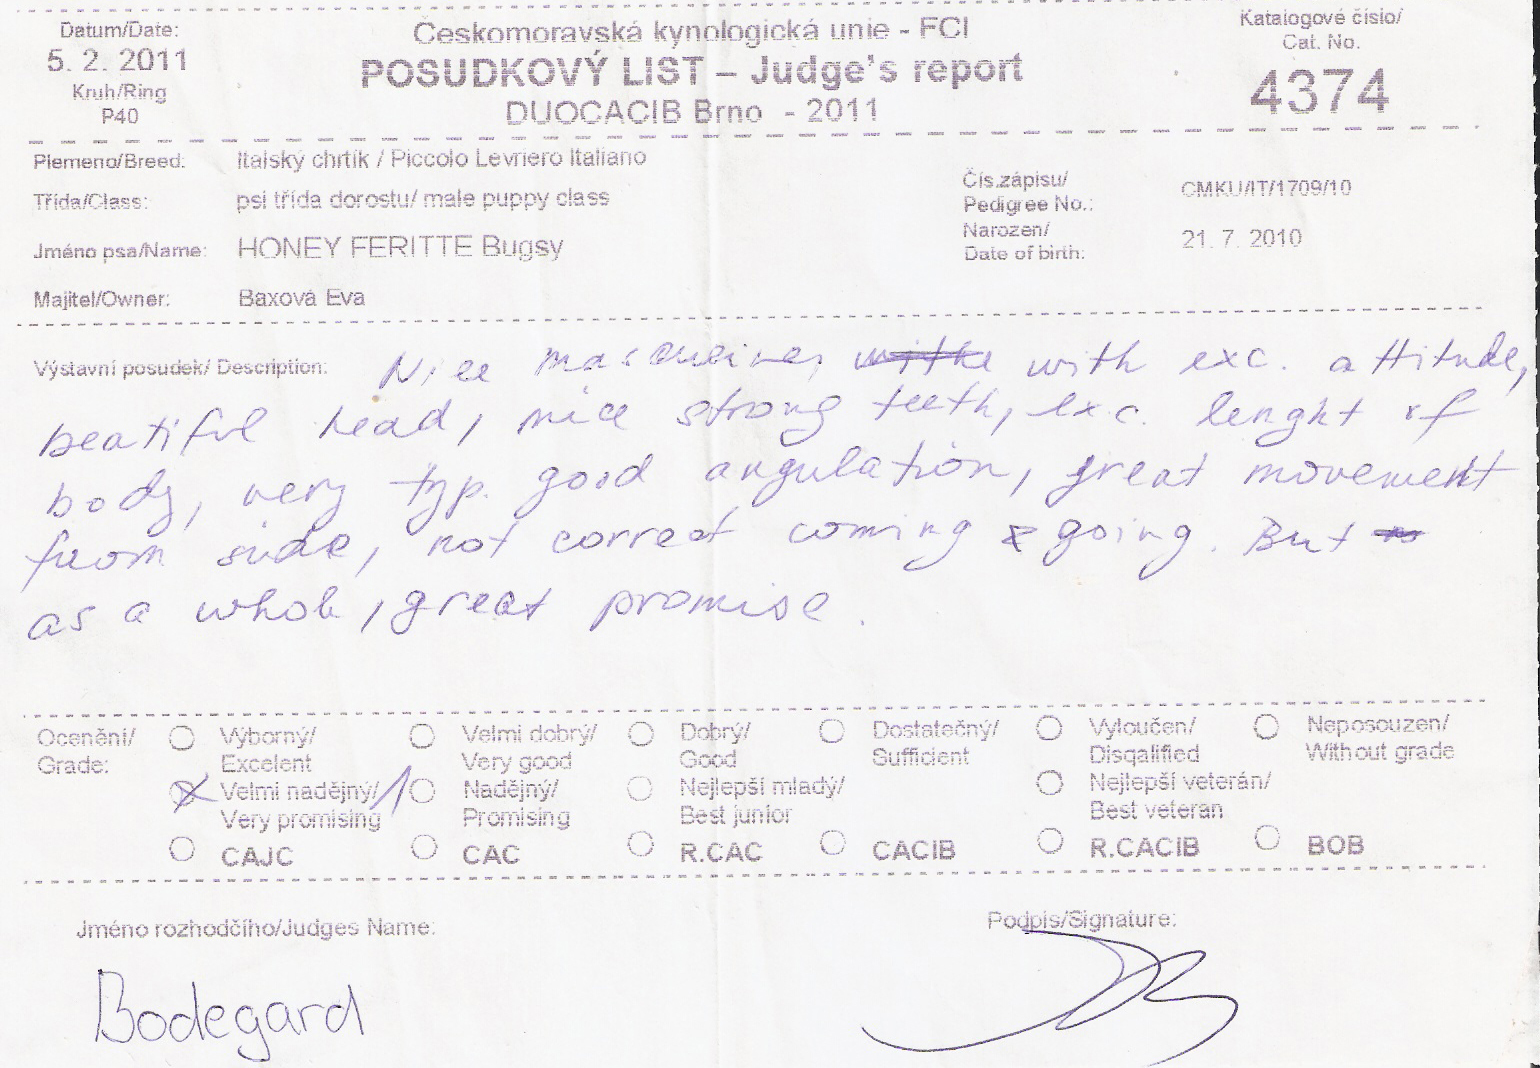 Datum/Date:
5. 2. 2011
Kruh/Ring
P40
Českomoravská kynologická unie - FCI
POSUDKOVÝ LIST – Judge's report
DUOCACIB Brno - 2011
Katalogové číslo/
Cat. No.
4374
Plemeno/Breed: Italský chrtík / Piccolo Levriero Italiano
Třída/Class: psi třída dorostu/ male puppy class
Jméno psa/Name: HONEY FERITTE Bugsy
Majitel/Owner: Baxová Eva
Čís.zápisu/
Pedigree No.: CMKU/IT/1709/10
Narozen/
Date of birth: 21. 7. 2010
Výstavní posudek/ Description: Nice with exc. attitude,
beatiful head, nice strong teeth, exc. lenght of
body, very typ. good angulation, great movement
from side, not correct coming & going. But
as a whole, great promise.
Ocenění/
Grade:
Výborný/
Excelent
Velmi dobrý/
Very good
Dobrý/
Good
Dostatečný/
Sufficient
Vyloučen/
Disqalified
Neposouzen/
Without grade
Velmi nadějný/ 1
Very promising
Nadějný/
Promising
Nejlepší mladý/
Best junior
Nejlepší veterán/
Best veteran
CAJC CAC R.CAC CACIB R.CACIB BOB
Jméno rozhodčího/Judges Name:
Bodegard
Podpis/Signature: